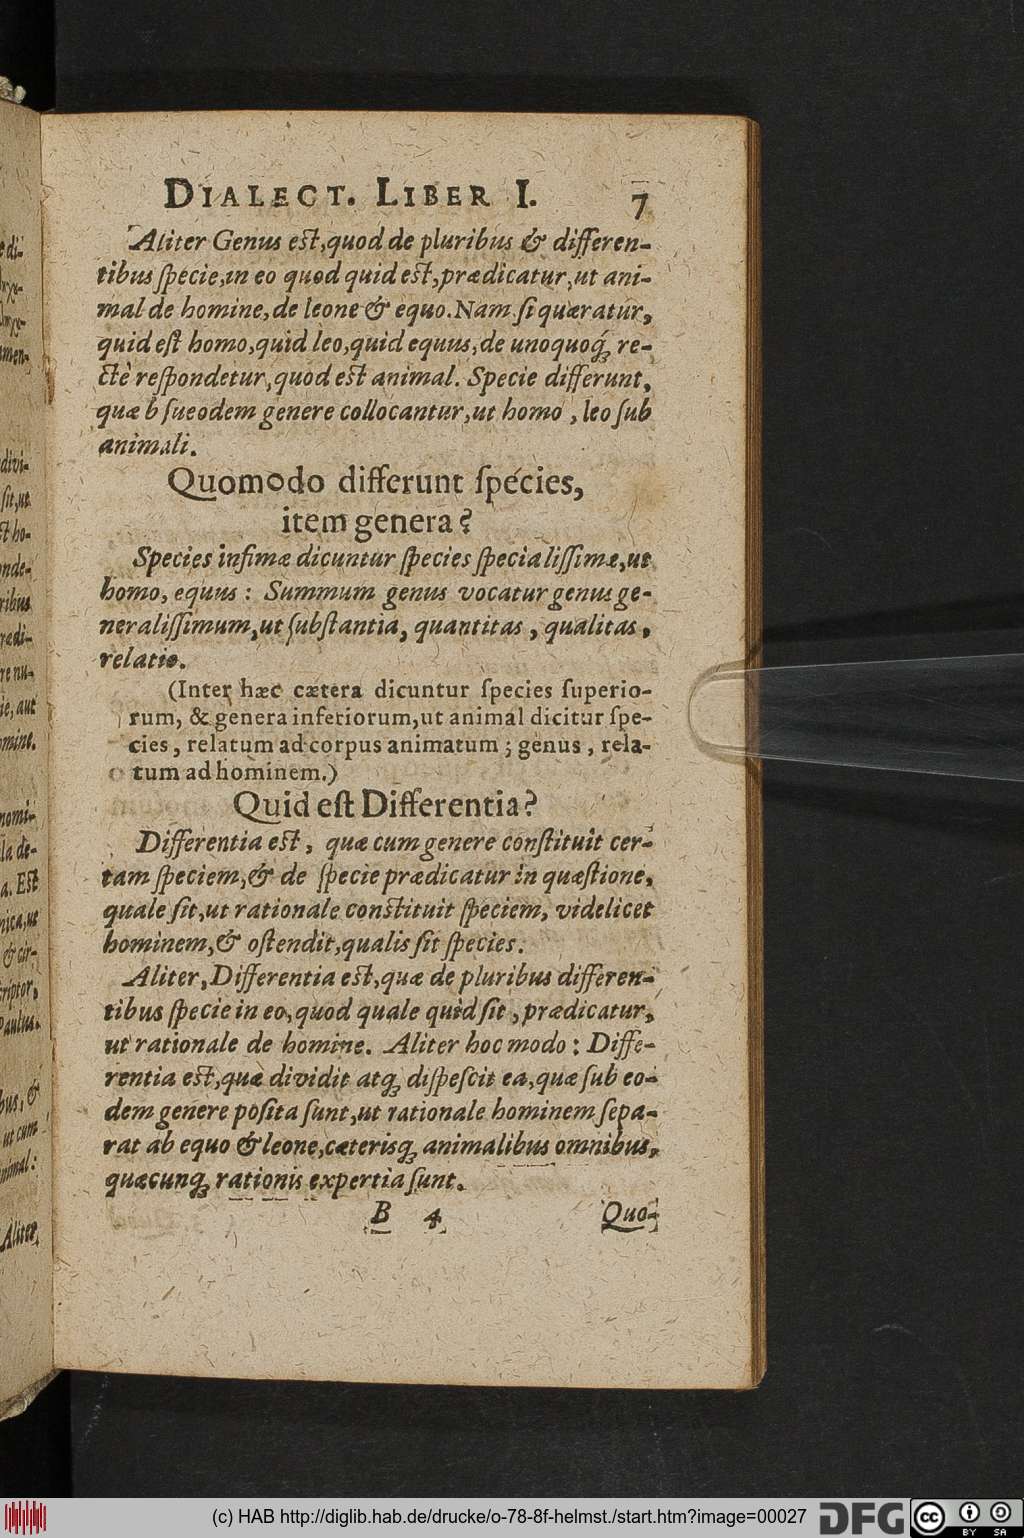 DIALECT. LIBER I. 7
Aliter Genus est, quod de pluribus & differen-
tibus ſpecie, in eo quod quid est, prædicatur, ut ani-
mal de homine, de leone & equo. Nam ſi quæratur,
quid eſt homo, quid leo, quid equus, de unoquoq́ꝫ re-
ctè reſpondetur, quod est animal. Specie differunt,
quæ b ſueodem genere collocantur, ut homo, leo ſub
animali.
Quomodo differunt ſpécies,
item genera?
Species infimæ dicuntur ſpecies ſpecialiſſimæ, ut
homo, equus: Summum genus vocatur genus ge-
neraliſſimum, ut ſubſtantia, quantitas, qualitas,
relatio.
(Inter hæc cætera dicuntur ſpecies ſuperio-
rum, & genera inferiorum, ut animal dicitur ſpe-
cies, relatum ad corpus animatum; genus, rela-
tum ad hominem.)
Quid eſt Differentia?
Differentia est, quæ cum genere conſtituit cer-
tam ſpeciem, & de ſpecie prædicatur in quæſtione,
quale ſit, ut rationale constituit ſpeciem, videlicet
hominem, & oſtendit, qualis ſit ſpecies.
Aliter, Differentia est, quæ de pluribus differen-
tibus ſpecie in eo, quod quale quid ſit, prædicatur,
ut rationale de homine. Aliter hoc modo: Diffe-
rentia est, quæ dividit atqꝫ diſpeſcit ea, quæ ſub eo-
dem genere poſita ſunt, ut rationale hominem ſepa-
rat ab equo & leone, cæterisqꝫ animalibus omnibus,
quæcunqꝫ rationis expertia ſunt.
B 4 Quo-
(c) HAB http://diglib.hab.de/drucke/o-78-8f-helmst./start.htm?image=00027
DFG
cc BY SA